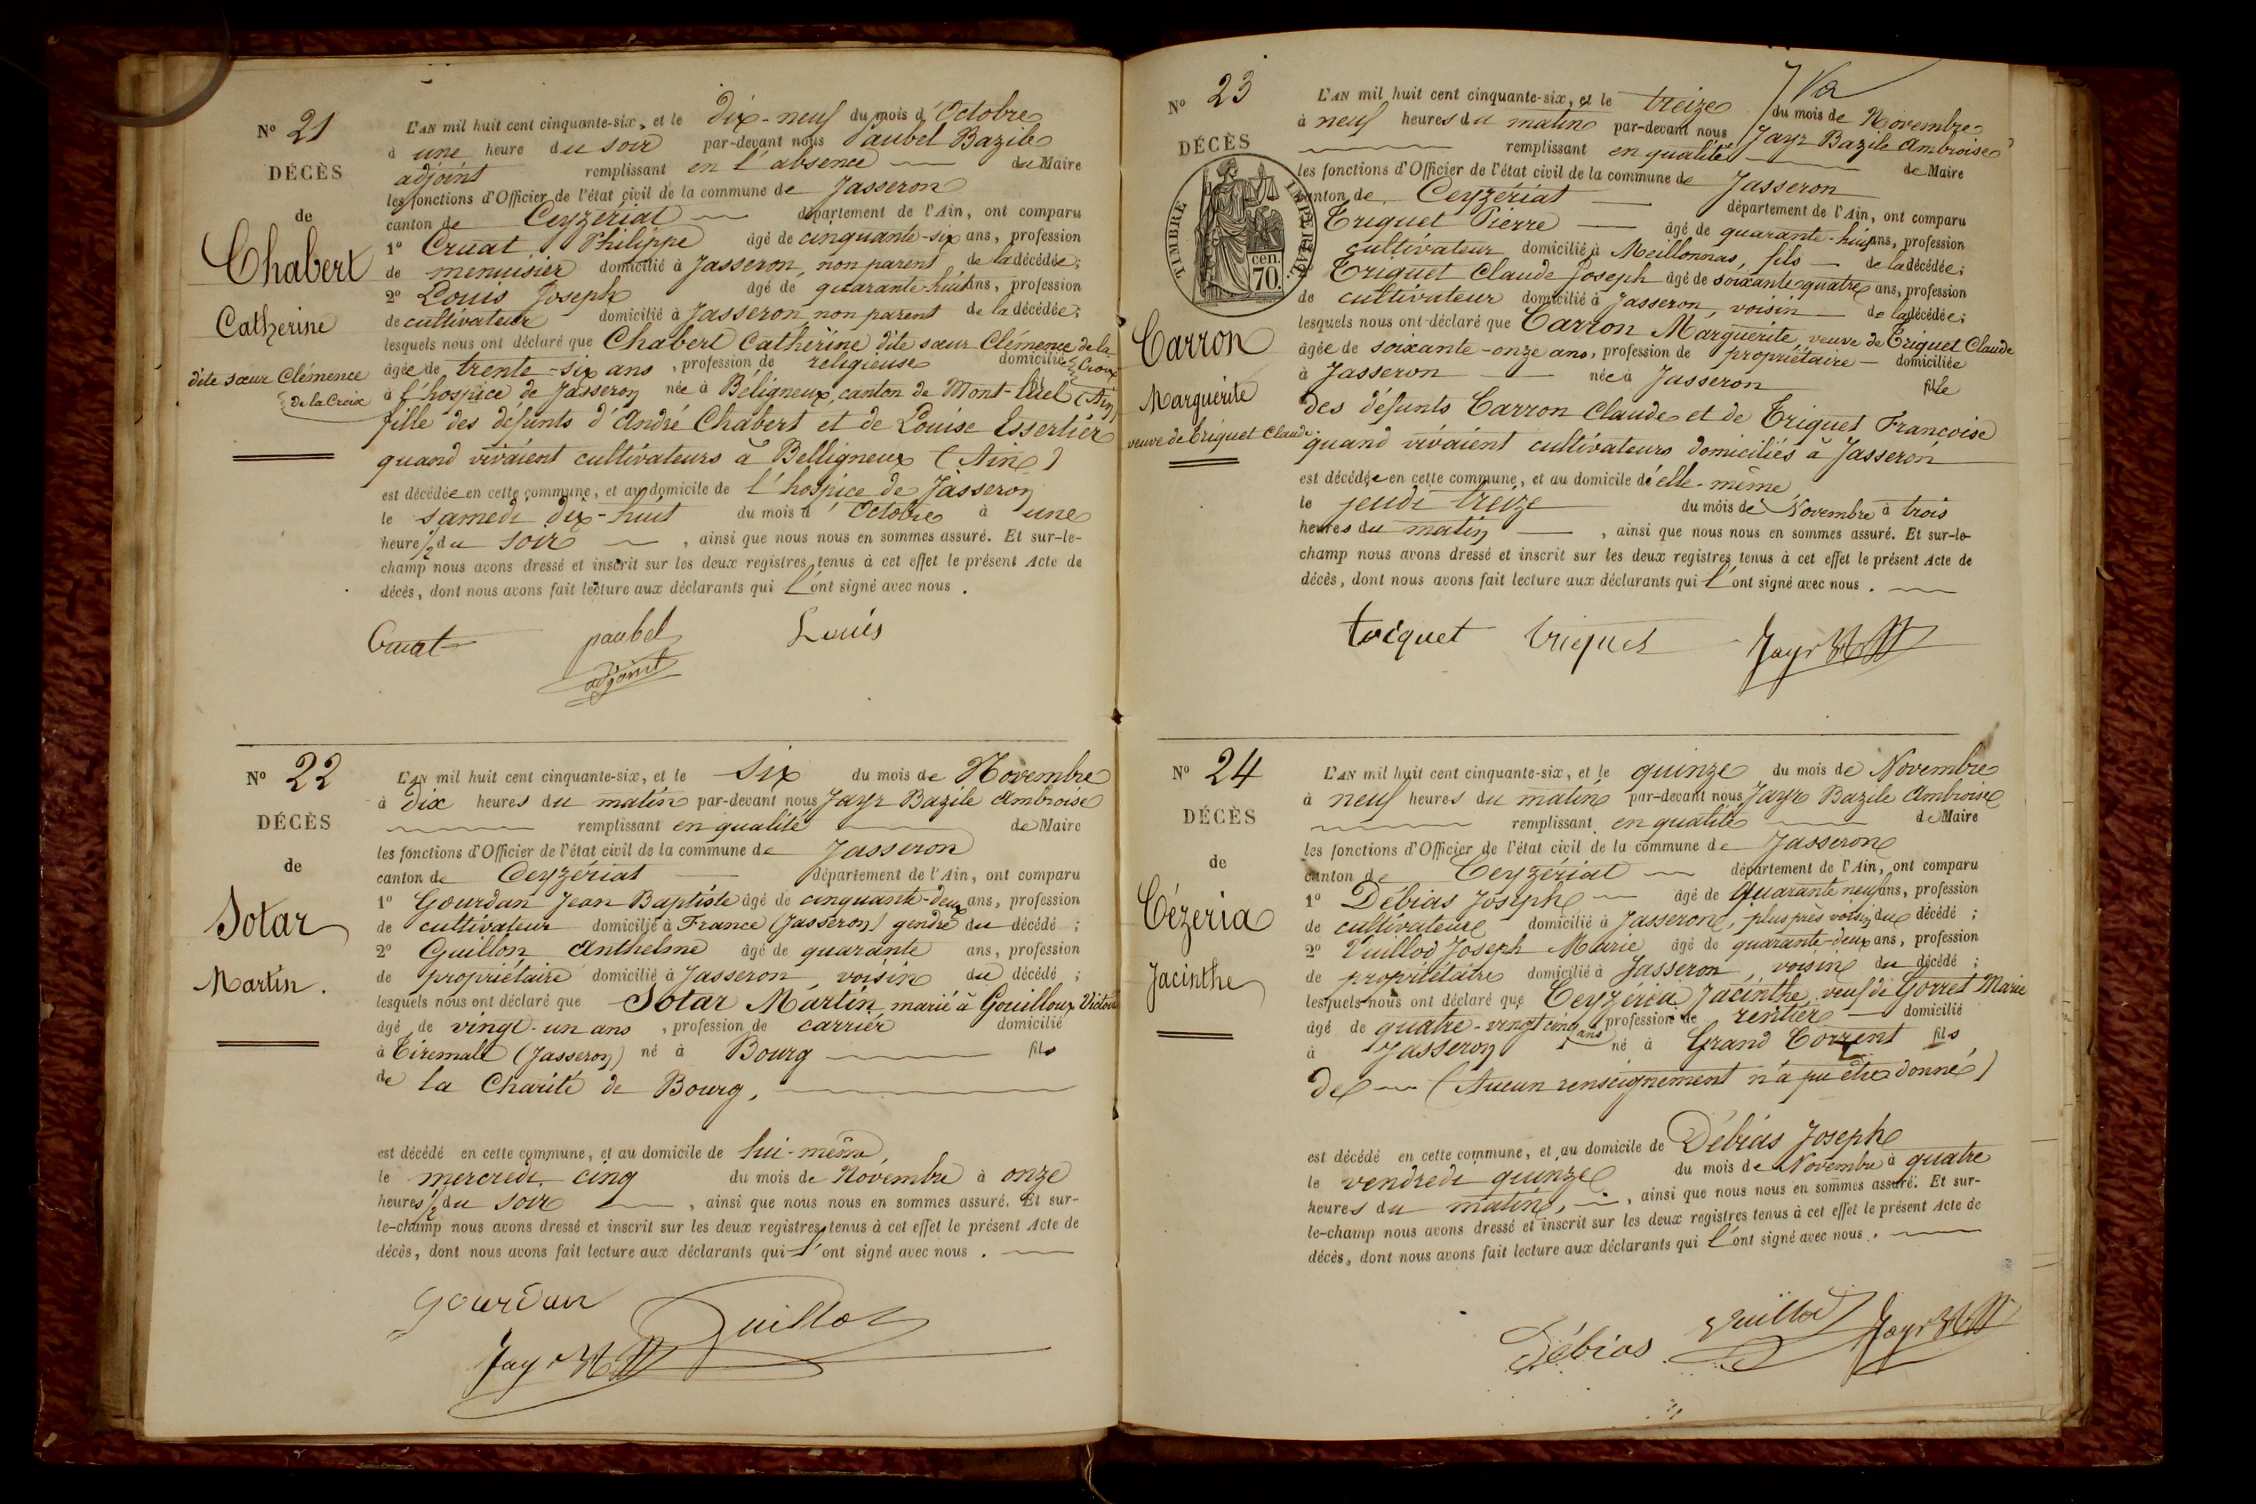 Nº 21
DÉCÈS
de
Chabert
Catherine
dite sœur Clémence
de la Croix
L'AN mil huit cent cinquante-six, et le dix-neuf du mois d'Octobre
à une heure du soir par-devant nous Paubel Bazile
adjoint remplissant en l'absence du Maire
les fonctions d'Officier de l'état civil de la commune de Jasseron
canton de Ceyzériat département de l'Ain, ont comparu
1º Cruat Philippe âgé de cinquante-six ans, profession
de menuisier domicilié à Jasseron, non parent de la décédée;
2º Louis Joseph âgé de quarante-huit ans, profession
de cultivateur domicilié à Jasseron non parent de la décédée;
lesquels nous ont déclaré que Chabert Catherine dite sœur Clémence de la Croix
âgée de trente-six ans, profession de religieuse domiciliée
à l'hospice de Jasseron née à Béligneux, canton de Mont-luel (Ain)
fille des défunts d'André Chabert et de Louise Essertier
quand vivaient cultivateurs à Belligneux (Ain)
est décédée en cette commune, et au domicile de l'hospice de Jasseron
le samedi dix-huit du mois d'Octobre à une
heure 1/2 du soir, ainsi que nous nous en sommes assuré. Et sur-le-
champ nous avons dressé et inscrit sur les deux registres tenus à cet effet le présent Acte de
décès, dont nous avons fait lecture aux déclarants qui l'ont signé avec nous.
Cruat paubel Louis
adjoint
Nº 22
DÉCÈS
de
Sotar
Martin.
L'AN mil huit cent cinquante-six, et le six du mois de Novembre
à dix heures du matin par-devant nous Jayr Bazile Ambroise
remplissant en qualité de Maire
les fonctions d'Officier de l'état civil de la commune de Jasseron
canton de Ceyzériat département de l'Ain, ont comparu
1º Gourdan Jean Baptiste âgé de cinquante-deux ans, profession
de cultivateur domicilié à France (Jasseron) gendre du décédé;
2º Guillon Anthelme âgé de quarante ans, profession
de propriétaire domicilié à Jasseron, voisin du décédé;
lesquels nous ont déclaré que Sotar Martin, marié à Gouilloux
âgé de vingt-un ans, profession de carrier domicilié
à Tiremale (Jasseron) né à Bourg fils
de la Charité de Bourg,
est décédé en cette commune, et au domicile de lui-même,
le mercredi cinq du mois de Novembre à onze
heures 1/2 du soir, ainsi que nous nous en sommes assuré. Et sur-
le-champ nous avons dressé et inscrit sur les deux registres tenus à cet effet le présent Acte de
décès, dont nous avons fait lecture aux déclarants qui l'ont signé avec nous.
Gourdan Guillon
Jayr
Nº 23
DÉCÈS
TIMBRE IMPERIAL
cen.
70.
Carron
Marguerite
veuve de Triquet Claude
Va
L'AN mil huit cent cinquante-six, et le treize du mois de Novembre
à neuf heures du matin par-devant nous Jayr Bazile Ambroise
remplissant en qualité de Maire
les fonctions d'Officier de l'état civil de la commune de Jasseron
canton de Ceyzériat département de l'Ain, ont comparu
Triquet Pierre âgé de quarante-huit ans, profession
cultivateur domicilié à Meillonnas, fils de la décédée;
Triquet Claude Joseph âgé de soixante quatre ans, profession
de cultivateur domicilié à Jasseron, voisin de la décédée;
lesquels nous ont déclaré que Carron Marguerite, veuve de Triquet Claude
âgée de soixante-onze ans, profession de propriétaire domiciliée
à Jasseron née à Jasseron fille
des défunts Carron Claude et de Triquet Françoise
quand vivaient cultivateurs domiciliés à Jasseron
est décédée en cette commune, et au domicile d'elle-même
le jeudi treize du mois de Novembre à trois
heures du matin, ainsi que nous nous en sommes assuré. Et sur-le-
champ nous avons dressé et inscrit sur les deux registres tenus à cet effet le présent Acte de
décès, dont nous avons fait lecture aux déclarants qui l'ont signé avec nous.
triquet triquet Jayr
Nº 24
DÉCÈS
de
Cézeria
Jacinthe
L'AN mil huit cent cinquante-six, et le quinze du mois de Novembre
à neuf heures du matin par-devant nous Jayr Bazile Ambroise
remplissant en qualité de Maire
les fonctions d'Officier de l'état civil de la commune de Jasseron
canton de Ceyzériat département de l'Ain, ont comparu
1º Débias Joseph âgé de quarante neuf ans, profession
de cultivateur domicilié à Jasseron, plus près voisin du décédé;
2º Vuillod Joseph Marie âgé de quarante-deux ans, profession
de propriétaire domicilié à Jasseron, voisin du décédé;
lesquels nous ont déclaré que Ceyzéria Jacinthe, veuf de Gorret Marie
âgé de quatre-vingt cinq ans profession de rentier domicilié
à Jasseron né à Grand Corrent fils
de (Aucun renseignement n'a pu être donné)
est décédé en cette commune, et au domicile de Débias Joseph
le vendredi quinze du mois de Novembre à quatre
heures du matin, ainsi que nous nous en sommes assuré. Et sur-
le-champ nous avons dressé et inscrit sur les deux registres tenus à cet effet le présent Acte de
décès, dont nous avons fait lecture aux déclarants qui l'ont signé avec nous.
Débias Vuillod Jayr